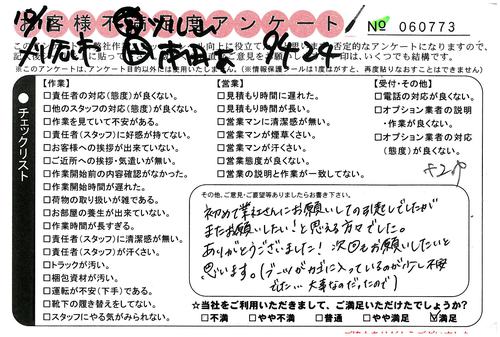 お客様不満度アンケート
No 060773
※このアンケートは、アンケート目的以外には使用いたしません。(※情報保護シールは1度はがすと、再度貼りなおすことはできません)
チェックリスト
【作業】
□責任者の対応(態度)が良くない。
□他のスタッフの対応(態度)が良くない。
□作業を見ていて不安がある。
□責任者(スタッフ)に好感が持てない。
□お客様への挨拶が出来ていない。
□ご近所への挨拶・気遣いが無い。
□作業開始前の内容確認がなかった。
□作業開始時間が遅れた。
□荷物の取り扱いが雑である。
□お部屋の養生が出来ていない。
□作業時間が長すぎる。
□責任者(スタッフ)に清潔感が無い。
□責任者(スタッフ)が汗くさい。
□トラックが汚い。
□梱包資材が汚い。
□運転が不安(下手)である。
□靴下の履き替えをしてない。
□スタッフにやる気がみられない。
【営業】
□見積もり時間に遅れた。
□見積もり時間が長い。
□営業マンに清潔感が無い。
□営業マンが煙草くさい。
□営業マンが汗くさい。
□営業態度が良くない。
□営業の説明と作業が一致してない。
【受付・その他】
□電話の対応が良くない。
□オプション業者の説明・作業が良くない。
□オプション業者の対応(態度)が良くない。
その他、ご意見・ご要望等ありましたらお書き下さい。
初めて業社さんにお願いしての引越しでしたが
またお願いしたい!と思える方々でした。
ありがとうございました!次回もお願いしたいと
思います。(ブーツがカゴに入っているのが少し不安
でした… 大事なのだったので)
☆当社をご利用いただきまして、ご満足いただけたでしょうか?
□不満 □やや不満 □普通 □やや満足 ☑満足